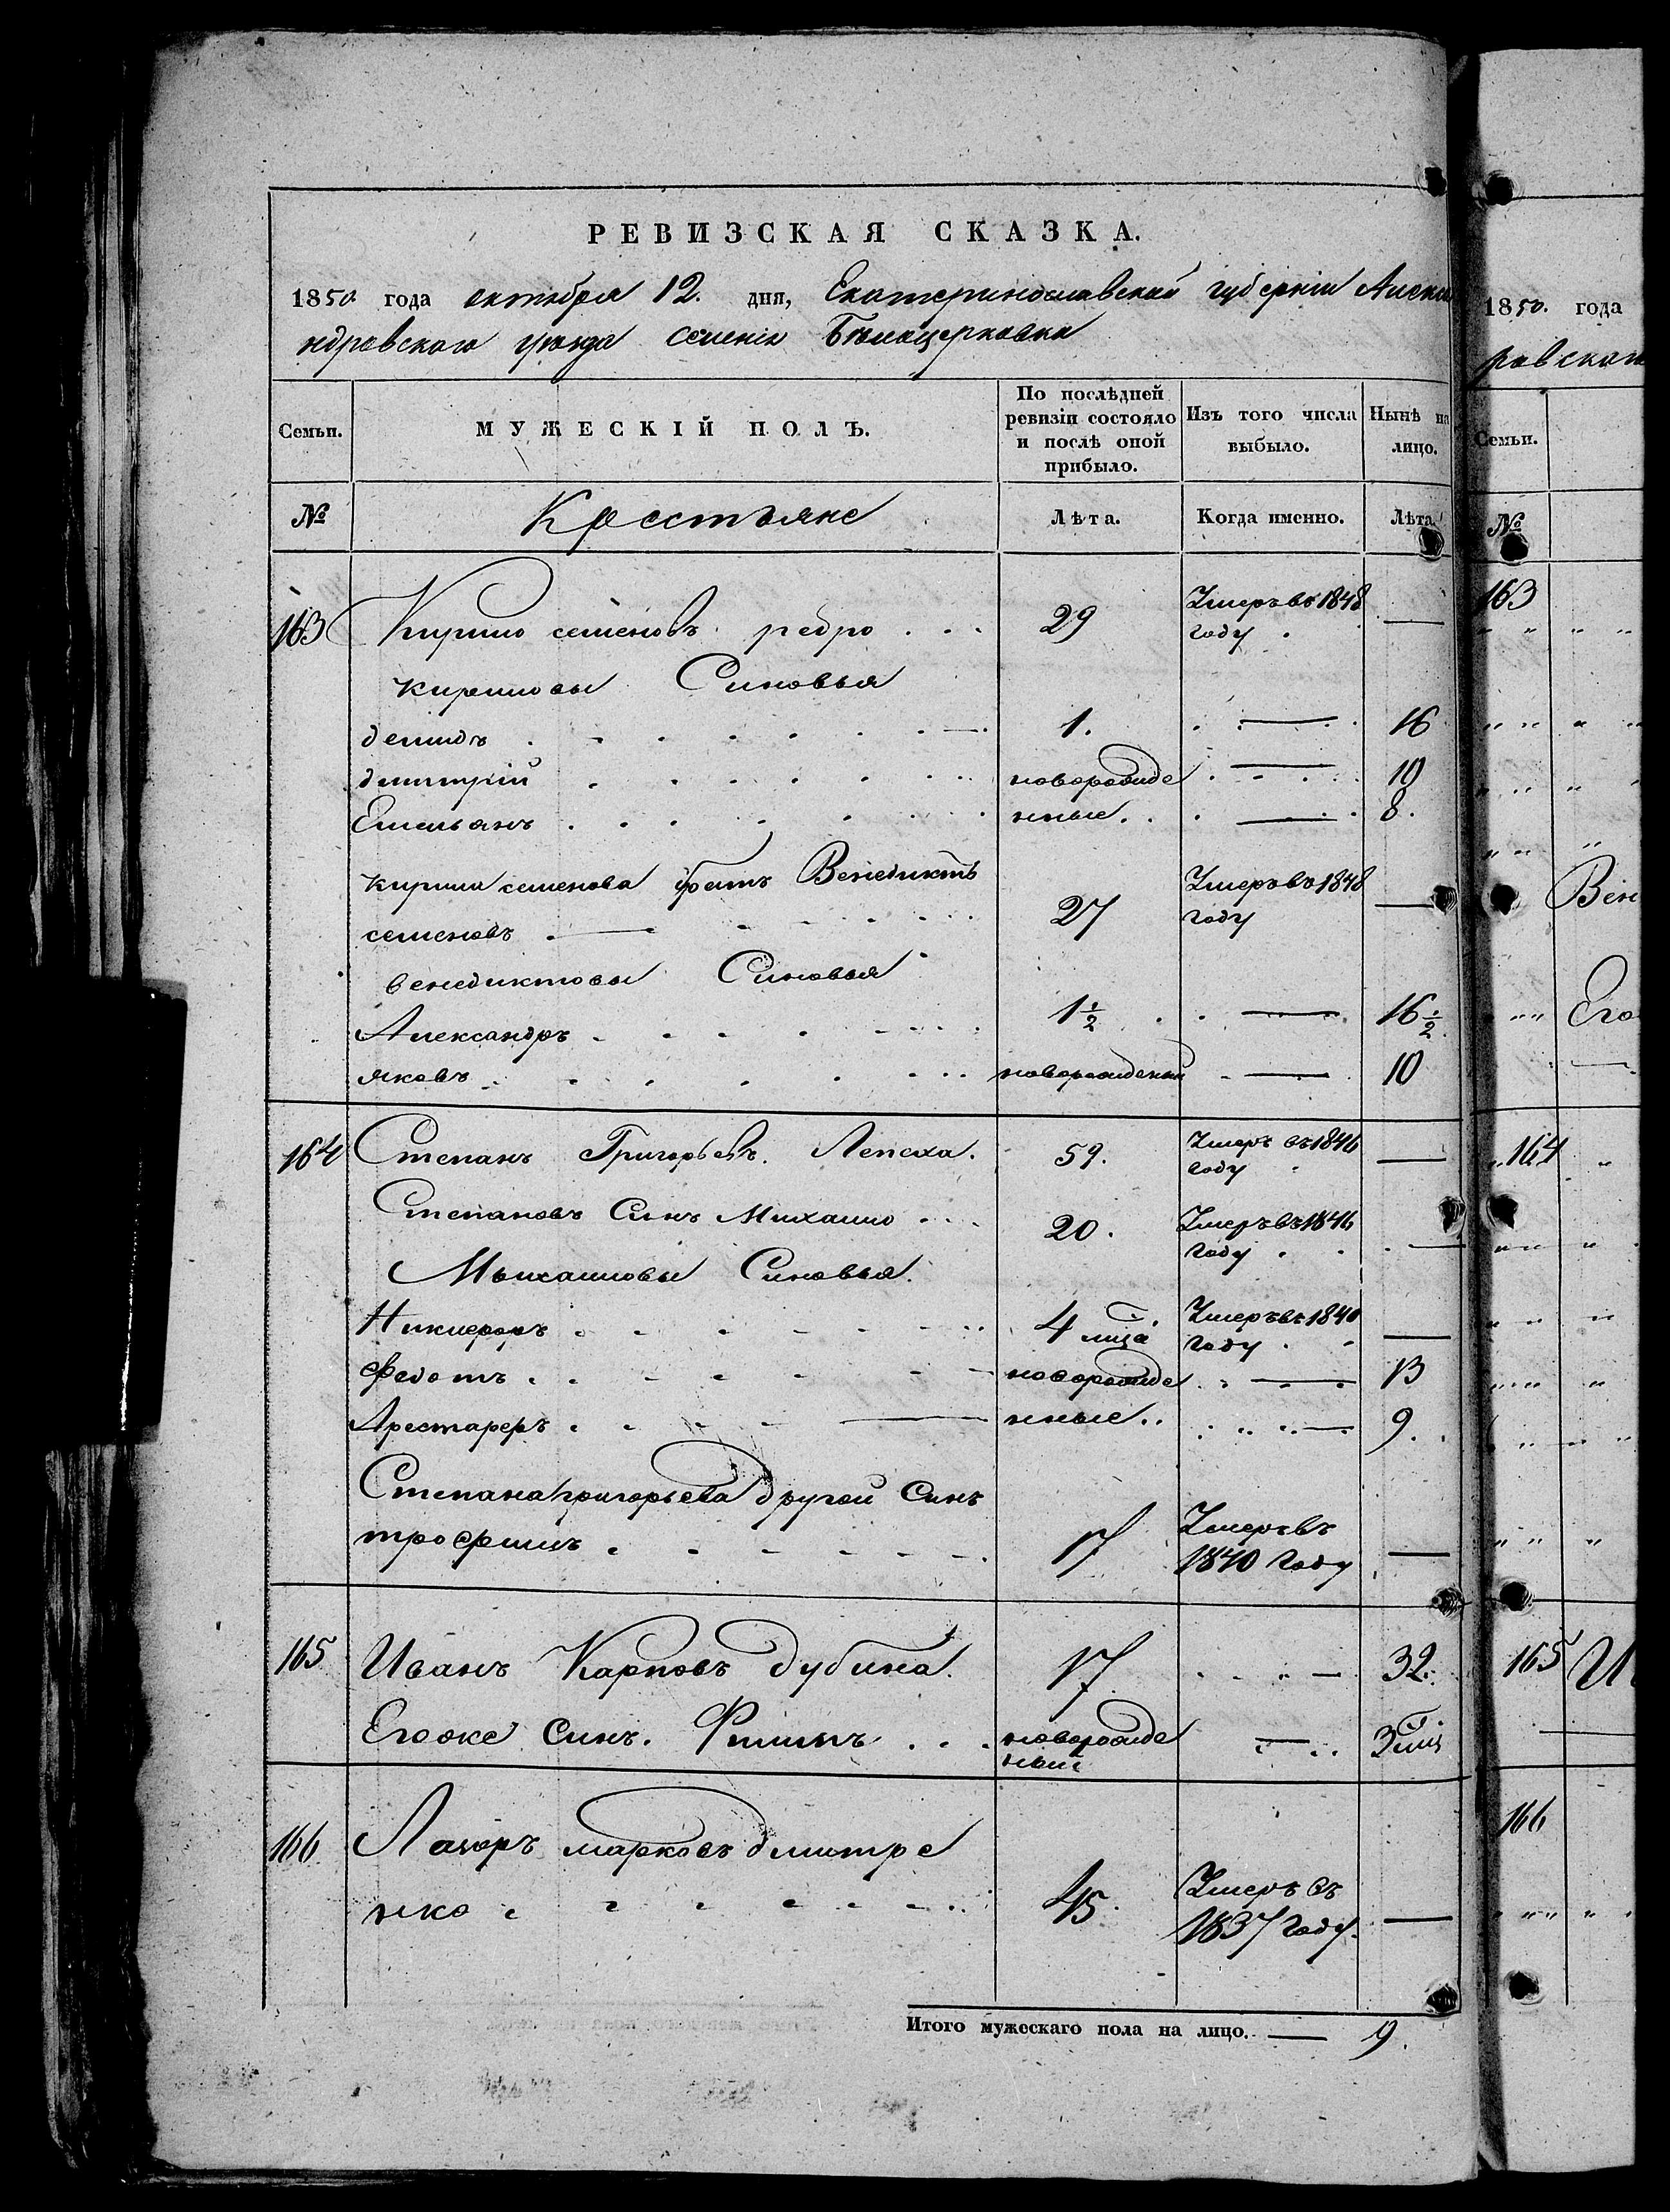 РЕВИЗСКАЯ СКАЗКА.
1850 года октября 12. дня, Екатеринославской губерніи Алекса
ндровского уѣзда селенія Бѣлоцерковка
Семьи. МУЖЕСКІЙ ПОЛЪ. По послѣдней ревизіи состояло и послѣ оной прибыло. Изъ того числа выбыло. Нынѣ на лицо.
№ Крестьяне Лѣта. Когда именно. Лѣта.
163 Кирило семеновъ ребро 29 Умеръ въ 1848 году —
кириловы Синовья
демидъ 1. — 16
дмитрій новорожде — 10
Емельянъ нные — 8.
кирила семенова братъ Венедиктъ
семеновъ 27 Умеръ въ 1848 году —
венедиктовы Синовья
Александръ 1½ — 16½
яковъ новорожденый — 10
164 Степанъ Григорьевъ Лепеха. 59. Умеръ въ 1846 году —
Степановъ Синъ Михаило 20. Умеръ въ 1846 году —
Мыхаиловы Синовья.
Никиѳоръ 4 мца Умеръ въ 1840 году —
Федотъ новорожде — 13
Арестархъ нные — 9.
Степана григорьева другой Синъ
трофимъ 17 Умеръ въ 1840 году —
165 Иванъ Карповъ дубина. 17 — 32.
Егоже Синъ. Филипъ новорожде ный — 3 мц
166 Лазоръ марковъ дмитре
нко 45. Умеръ въ 1837 году. —
Итого мужескаго пола на лицо. — 9.
1850. года
ровского
Семьи.
№
163
Вен
Его
164
165 И
166